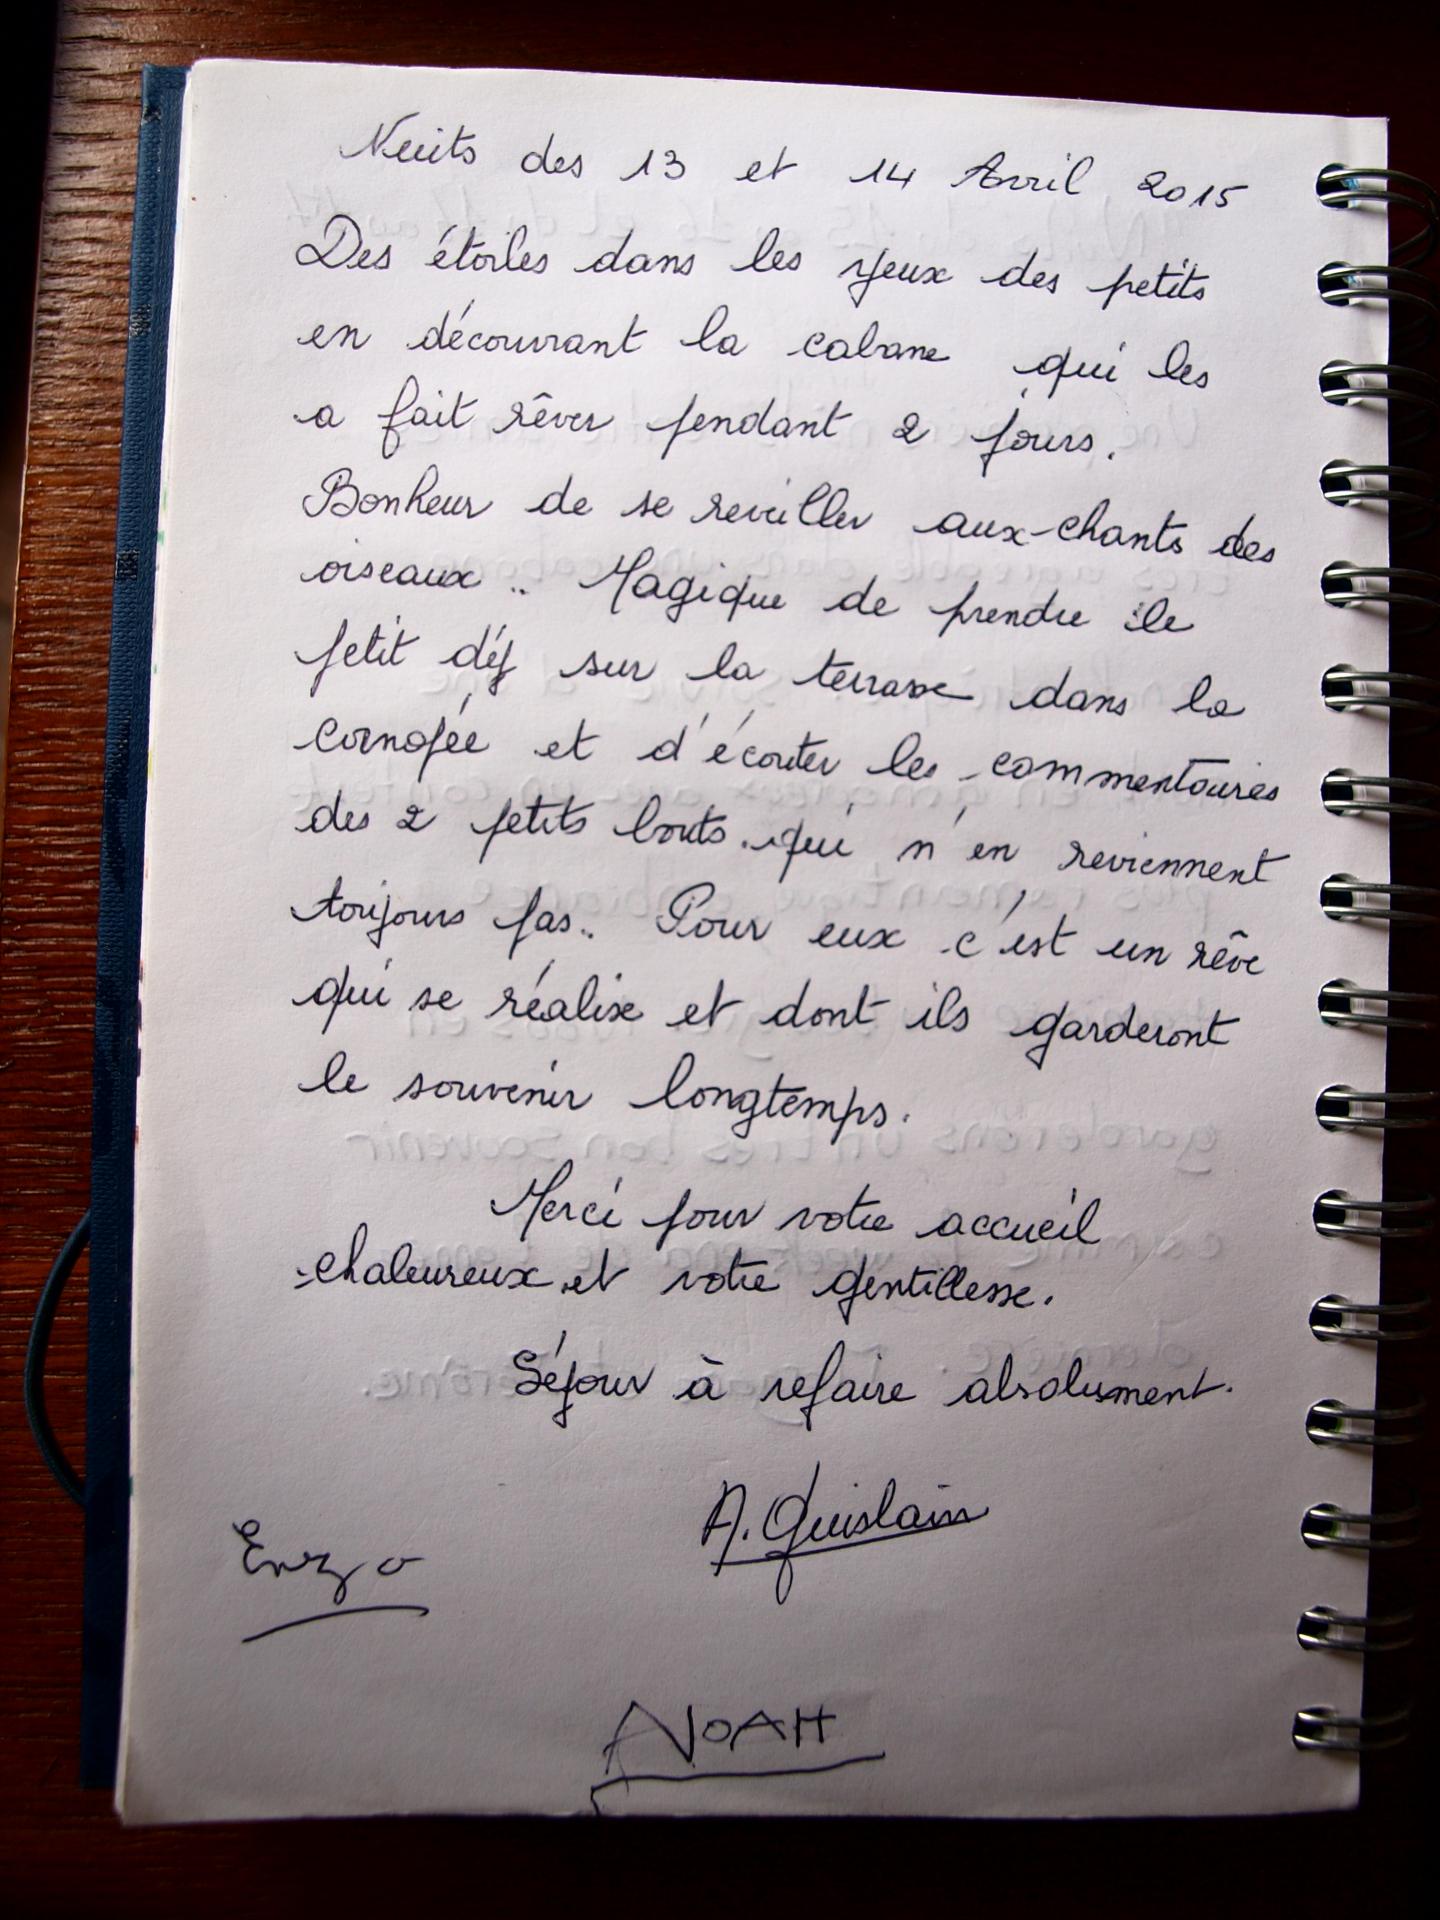 Nuits des 13 et 14 Avril 2015
Des étoiles dans les yeux des petits
en découvrant la cabane qui les
a fait rêver pendant 2 jours.
Bonheur de se reveiller aux chants des
oiseaux.. Magique de prendre le
petit déj sur la terrasse dans la
canopée et d'écouter les commentaires
des 2 petits bouts qui n'en reviennent
toujours pas.. Pour eux c'est un rêve
qui se réalise et dont ils garderont
le souvenir longtemps.
Merci pour votre accueil
chaleureux et votre gentillesse.
Séjour à refaire absolument.
A. Guislain
Enzo
NOAH